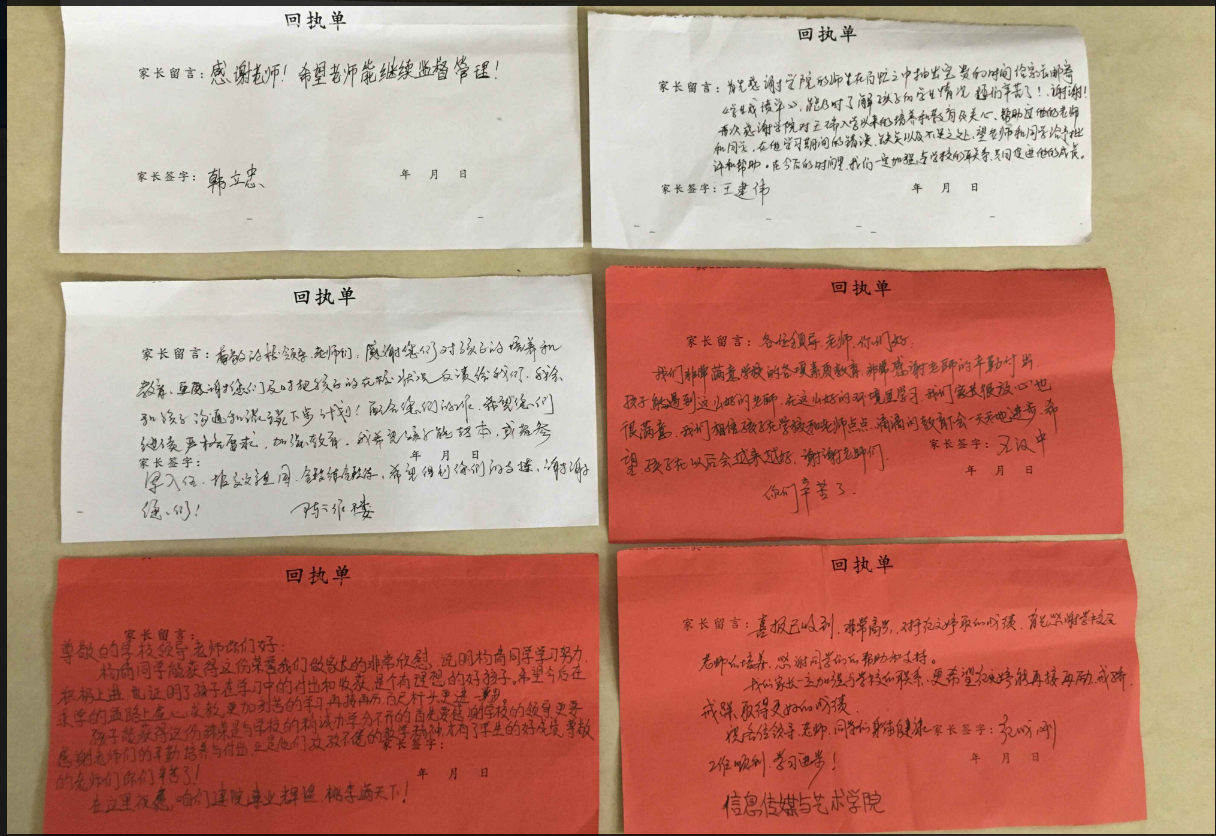 回执单
家长留言：感谢老师！希望老师能继续监督管理！
家长签字：韩立忠
年 月 日
回执单
家长留言：首先感谢学院的师生在百忙之中抽出宝贵的时间给家长邮寄
《学生成绩单》，能及时了解孩子的学生情况 您们辛苦了！谢谢！
再次感谢学院对王 入学以来的培养和教育及关心、帮助过他的老师
和同学，在他学习期间的错误、缺失以及不足之处，望老师和同学给予批
评和帮助。在今后的时间里，我们一定加强与学校的联系，共同促进他的成长。
家长签字：王建伟
年 月 日
回执单
家长留言：尊敬的校领导、老师们，感谢您们对孩子的培养和
教育，更感谢您们及时把孩子的在校状况反馈给我们，我会
和孩子沟通和 下步计划！配合您们的工作。希望您们
继续严格要求，加强教育。我希望孩子能 本，或者参
年 月 日
家长签字：
希望得到你们的支持，谢谢
您们！
回执单
家长留言：各位领导、老师，你们好
我们非常满意学校的各项素质教育，非常感谢老师的辛勤付出，
孩子能遇到这么好的老师，在这么好的环境里学习，我们家长很放心也
很满意，我们相信孩子在学校和老师点点滴滴的教育会一天天地进步，希
望孩子在以后会越来越好，谢谢老师们。
家长签字：王汉中
年 月 日
你们辛苦了。
回执单
家长留言：
尊敬的学校领导老师你们好：
同学能获得这份荣誉我们做家长的非常欣慰，说明 同学学习努力，
积极上进，也证明了孩子在学习中的付出和收获，是个有理想的好孩子。希望今后在
求学的道路上虚心求教，更加刻苦的学习再接再励百尺竿头更进一步
孩子能获得这份 是与学校的精诚办学分不开的首先要感谢学校的领导更要
感谢老师们的辛勤培养与付出，正是他们孜孜不倦的教学精神才有了学生的好成绩，尊敬
家长签字：
的老师们你们辛苦了！
年 月 日
在这里祝愿，咱们建院事业辉煌，桃李满天下！
回执单
家长留言：喜报已收到，非常高兴，对于 取的成绩，首先感谢学校及
老师的培养，感谢同学们的帮助和支持。
我们家长一定加强与学校的联系，更希望 能再接再励，戒骄
戒躁取得更好的成绩。
祝各位领导、老师、同学们身体健康
家长签字：
工作顺利，学习进步！
年 月 日
信息传媒与艺术学院